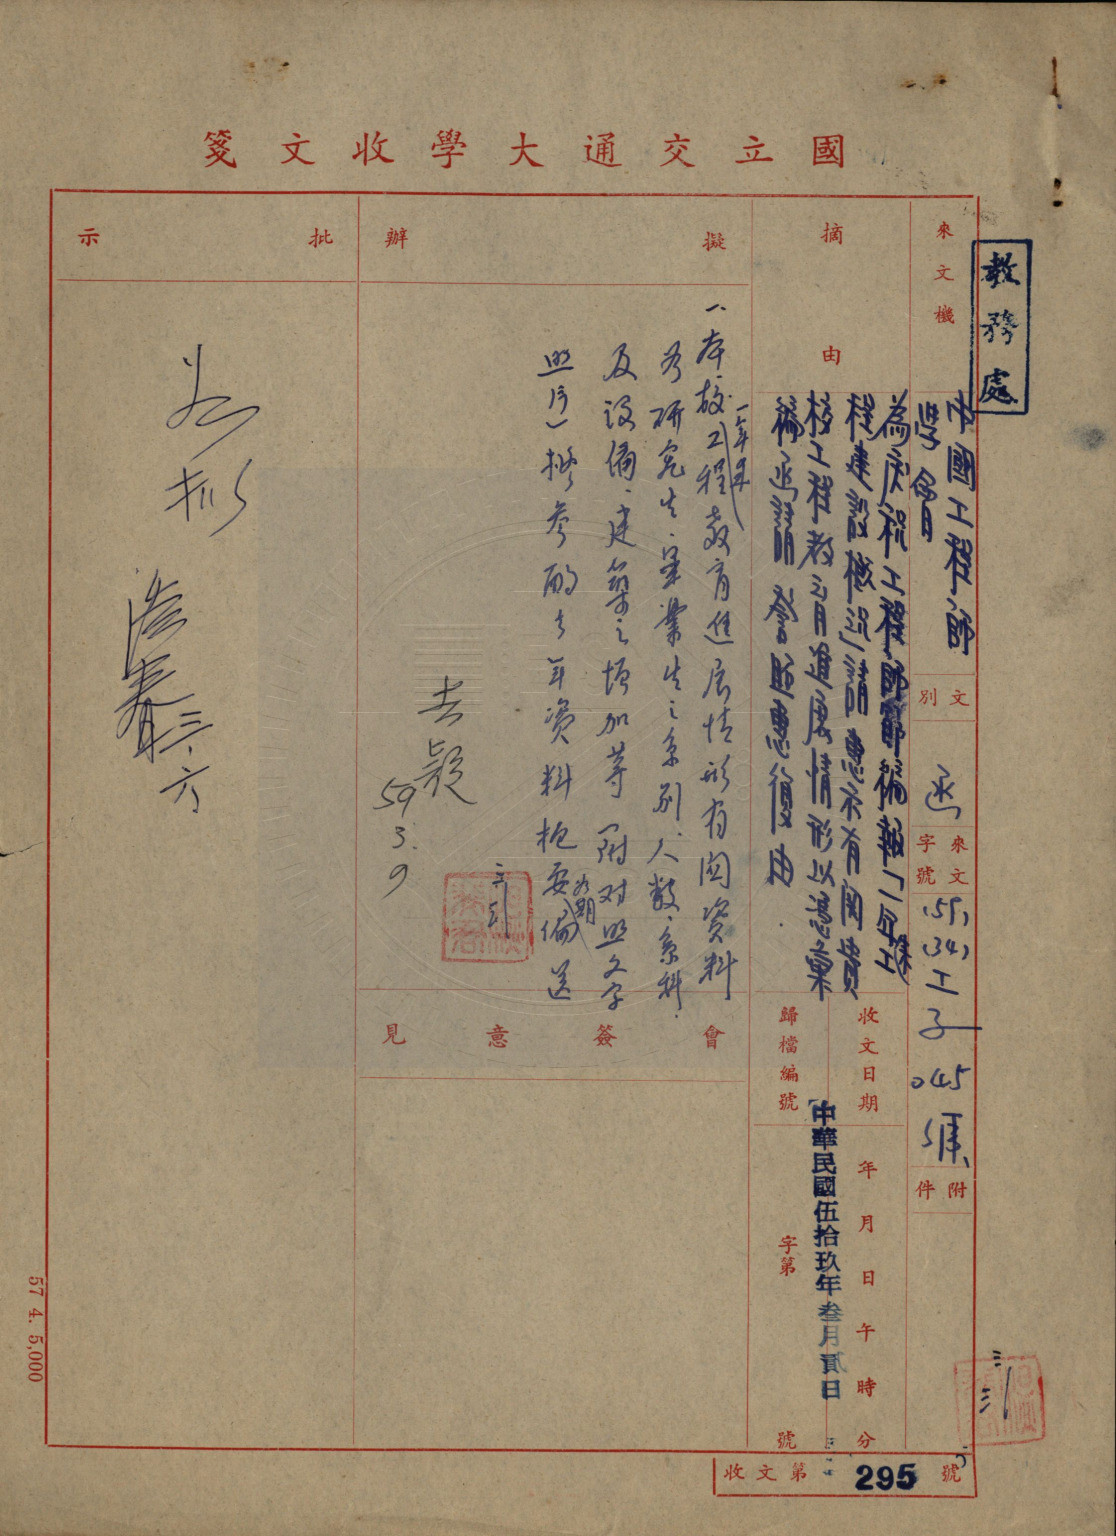 國立交通大學收文箋
教務處
來文機
中國工程師
學會
文別
函
來文字號
(59)
(34)
工
子
045
號
附件
摘由
為慶祝工程師節編報「一年來工
程建設概況」請惠示有關貴
校工程教育進展情形以憑彙
編函請 詧照惠復由
收文日期
年月日午時分
中華民國伍拾玖年叁月貳日
歸檔編號
字第
號
擬辦
一、本校一年來工程教育進展情形有關資料
為研究生、畢業生之系別、人數、系科、
及設備、建築之增加等(附对照文字
照片)擬參酌去年資料扼要編送
59
3.
9
會簽意見
批示
如擬
三、六
收文第295號
57 4. 5,000